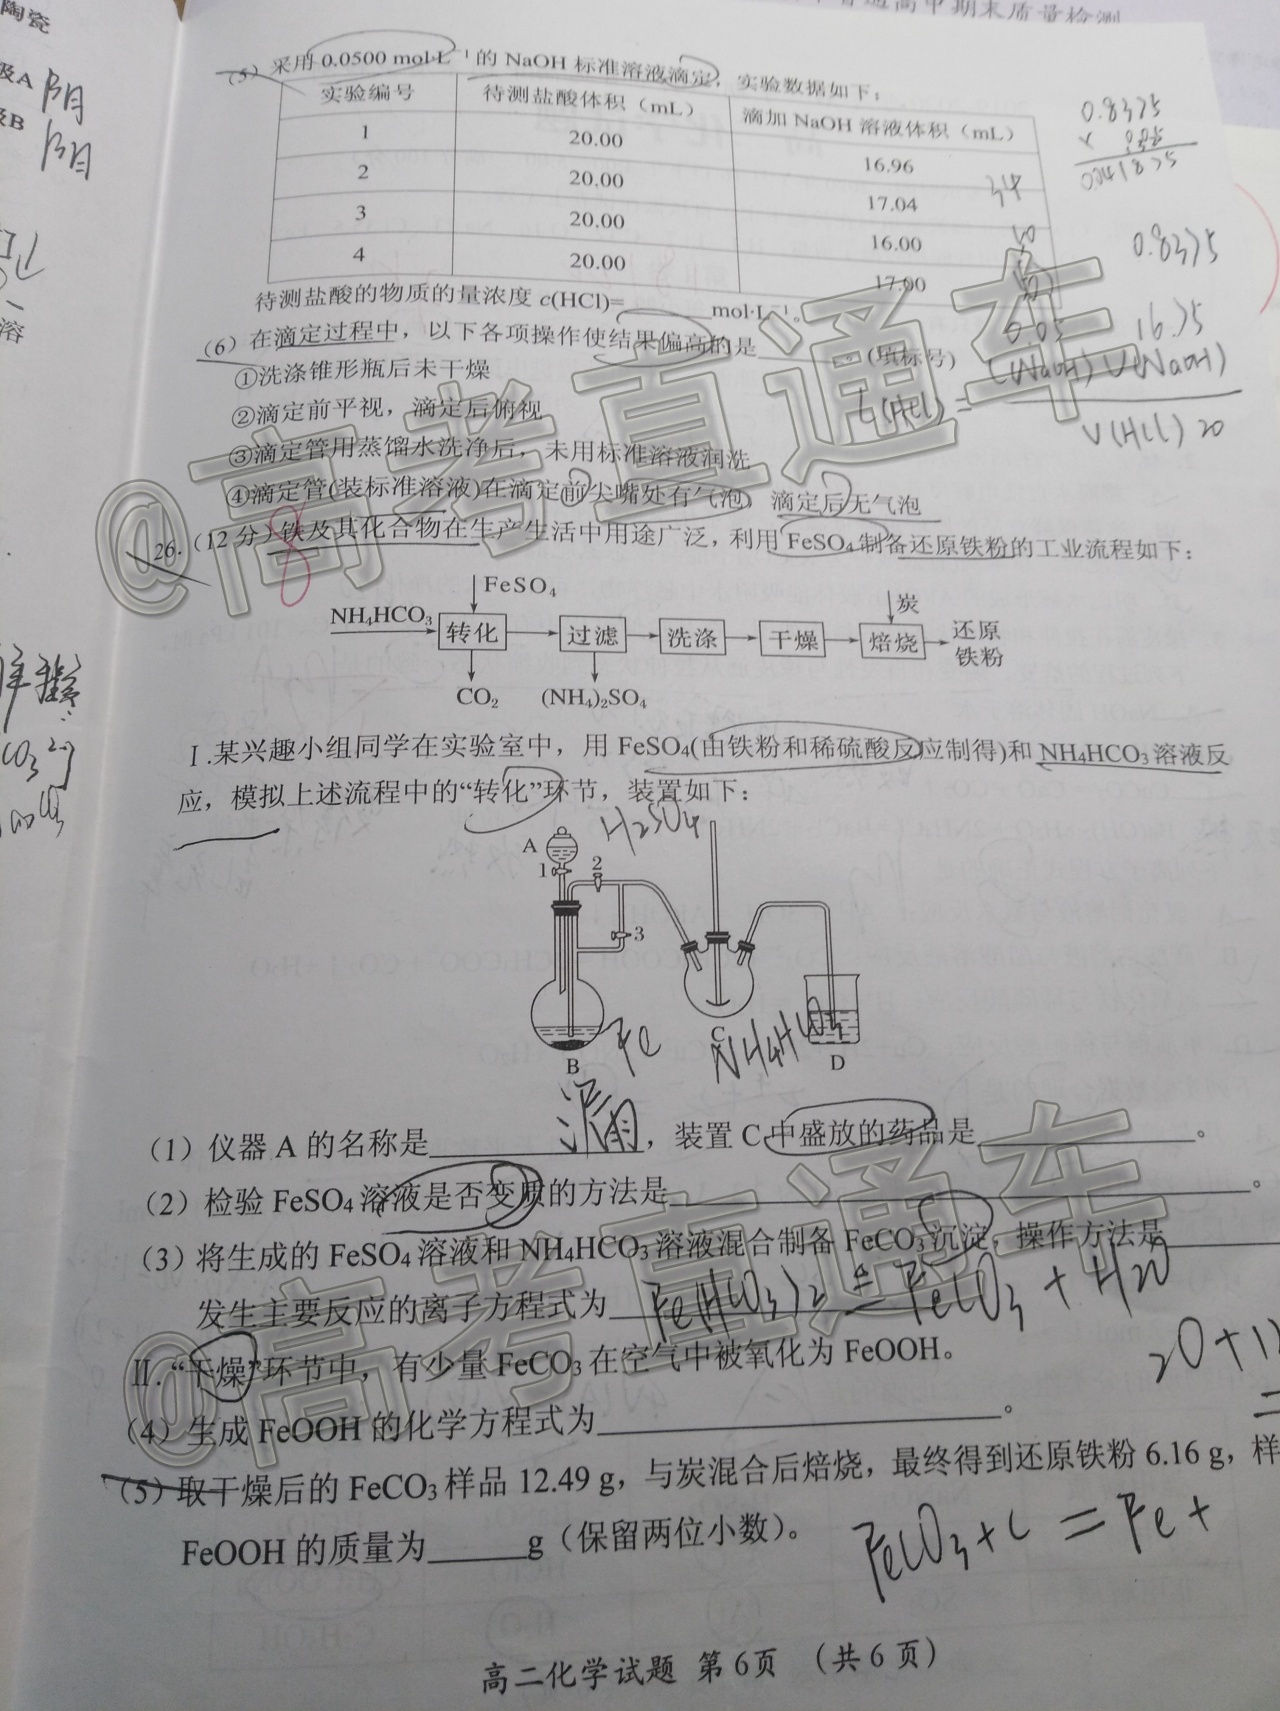 陶瓷
普通高中期末质量检测
(5)采用 0.0500 mol·L⁻¹ 的 NaOH 标准溶液滴定，实验数据如下：
实验编号 待测盐酸体积（mL） 滴加 NaOH 溶液体积（mL）
1 20.00 16.96
2 20.00 17.04
3 20.00 16.00
4 20.00 17.00
待测盐酸的物质的量浓度 c(HCl)=______mol·L⁻¹。
(6)在滴定过程中，以下各项操作使结果偏高的是______。(填标号)
①洗涤锥形瓶后未干燥
②滴定前平视，滴定后俯视
③滴定管用蒸馏水洗净后，未用标准溶液润洗
④滴定管(装标准溶液)在滴定前尖嘴处有气泡，滴定后无气泡
0.8375
0.041875
34
0.8375
0.05 16.75
c(NaOH) V(NaOH)
c(HCl) =
V(HCl) 20
8
26.（12 分）铁及其化合物在生产生活中用途广泛，利用 FeSO₄制备还原铁粉的工业流程如下：
FeSO₄ 炭
NH₄HCO₃ 转化 过滤 洗涤 干燥 焙烧 还原铁粉
CO₂ (NH₄)₂SO₄
Ⅰ.某兴趣小组同学在实验室中，用 FeSO₄(由铁粉和稀硫酸反应制得)和 NH₄HCO₃溶液反
应，模拟上述流程中的“转化”环节，装置如下：
H₂SO₄
A
1 2
3
Fe NH₄HCO₃
B C D
（1）仪器 A 的名称是______，装置 C 中盛放的药品是______。
（2）检验 FeSO₄溶液是否变质的方法是______。
（3）将生成的 FeSO₄溶液和 NH₄HCO₃溶液混合制备 FeCO₃沉淀，操作方法是______
发生主要反应的离子方程式为 Fe(HCO₃)₂ = FeCO₃ + H₂O
Ⅱ.“干燥”环节中，有少量 FeCO₃在空气中被氧化为 FeOOH。
（4）生成 FeOOH 的化学方程式为______。
（5）取干燥后的 FeCO₃样品 12.49 g，与炭混合后焙烧，最终得到还原铁粉 6.16 g，样
FeOOH 的质量为______g（保留两位小数）。
FeCO₃+C = Fe+
高二化学试题 第 6页 （共 6 页）
@高考直通车
@高考直通车